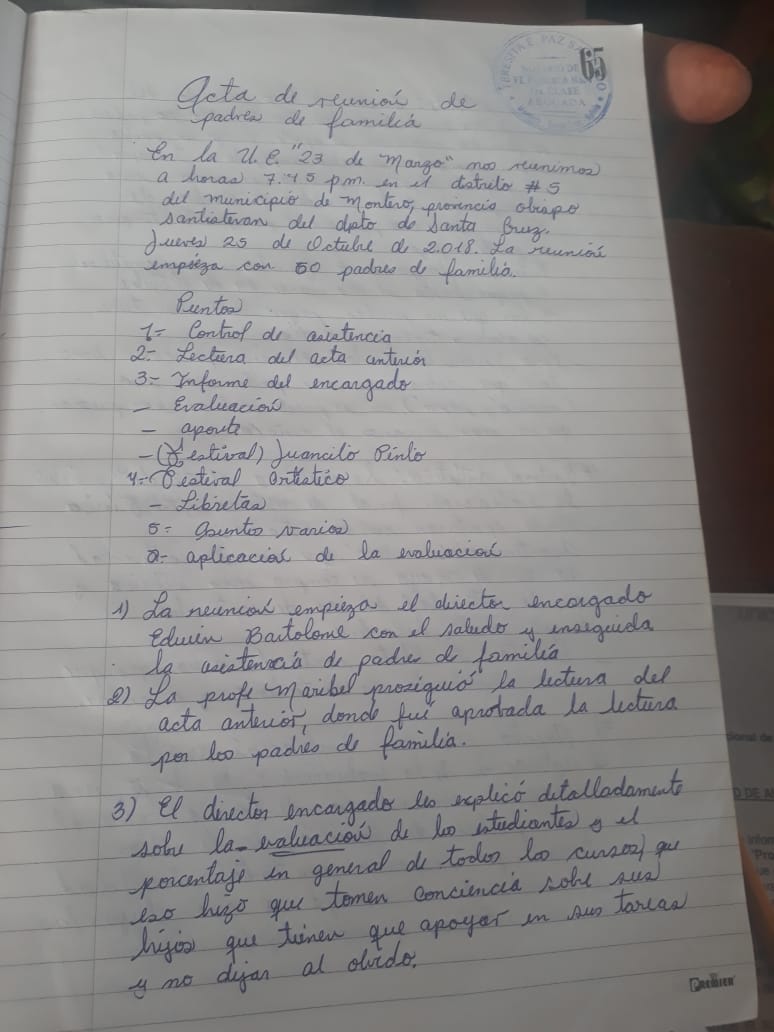 65
TERESITA E. PAZ
NOTARIO DE
FE PUBLICA
ABOGADA
Acta de reunión de
padres de familia
En la U.E. "23 de Marzo" nos reunimos
a horas 7:45 p.m. en el distrito #5
del municipio de Montero, provincia obispo
santistevan del dpto de Santa Cruz.
Jueves 25 de Octubre de 2.018. La reunión
empieza con 50 padres de familia.
Puntos
1- Control de asistencia
2- Lectura del acta anterior
3- Informe del encargado
- Evaluación
- aporte
- (Festival) Juancito Pinto
4- Festival artístico
- Libretas
5- Asuntos varios
a- aplicación de la evaluación
1) La reunion empieza el director encargado
Edwin Bartolome con el saludo y enseguida
la asistencia de padres de familia
2) La profe Maribel prosiguió la lectura del
acta anterior, donde fué aprobada la lectura
por los padres de familia.
3) El director encargado les explicó detalladamente
sobre la evaluación de los estudiantes y el
porcentaje en general de todos los cursos, que
eso hizo que tomen conciencia sobre sus
hijos que tienen que apoyar en sus tareas
y no dejar al olvido.
PREMIER